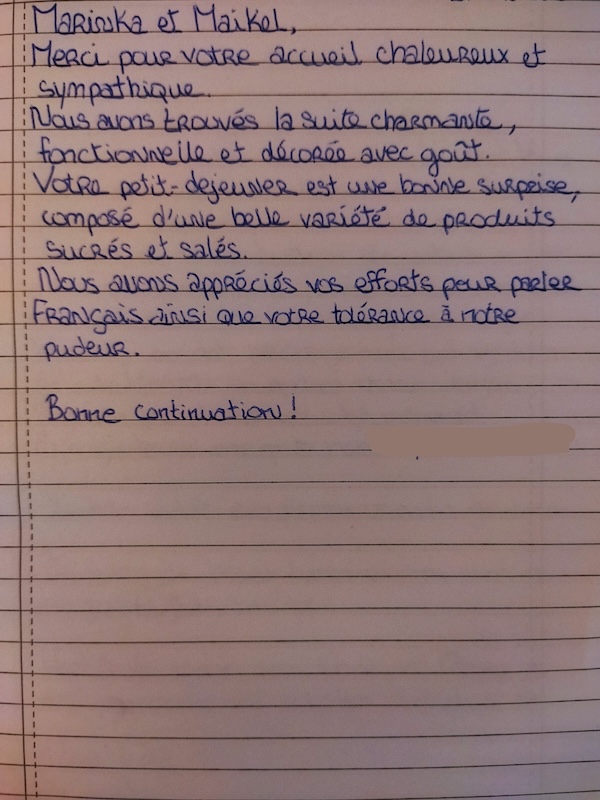 Marinka et Maikel,
Merci pour votre accueil chaleureux et
sympathique.
Nous avons trouvés la suite charmante,
fonctionnelle et décorée avec goût.
Votre petit-dejeuner est une bonne surprise,
composé d'une belle variété de produits
sucrés et salés.
Nous avons appréciés vos efforts pour parler
Français ainsi que votre tolérance à notre
pudeur.
Bonne continuation !